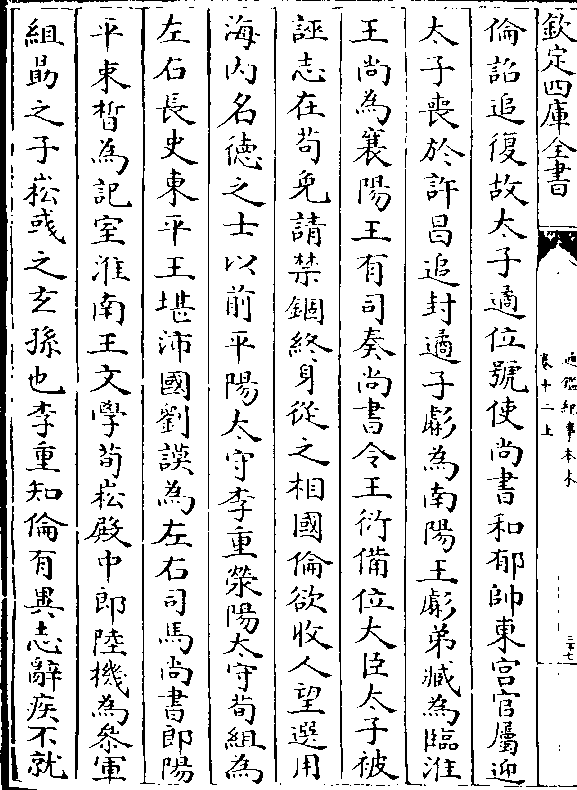 欽定四庫全書
通鑑紀事本末
卷十二上
三七
倫詔追復故太子遹位號使尚書和郁帥東宮官屬迎
太子喪於許昌追封遹子虨為南陽王虨弟臧為臨淮
王尚為襄陽王有司奏尚書令王衍備位大臣太子被
誣志在茍免請禁錮終身從之相國倫欲收人望選用
海內名德之士以前平陽太守李重滎陽太守荀組為
左右長史東平王堪沛國劉謨為左右司馬尚書郎陽
平束晳為記室淮南王文學荀崧殿中郎陸機為參軍
組勗之子崧彧之玄孫也李重知倫有異志辭疾不就